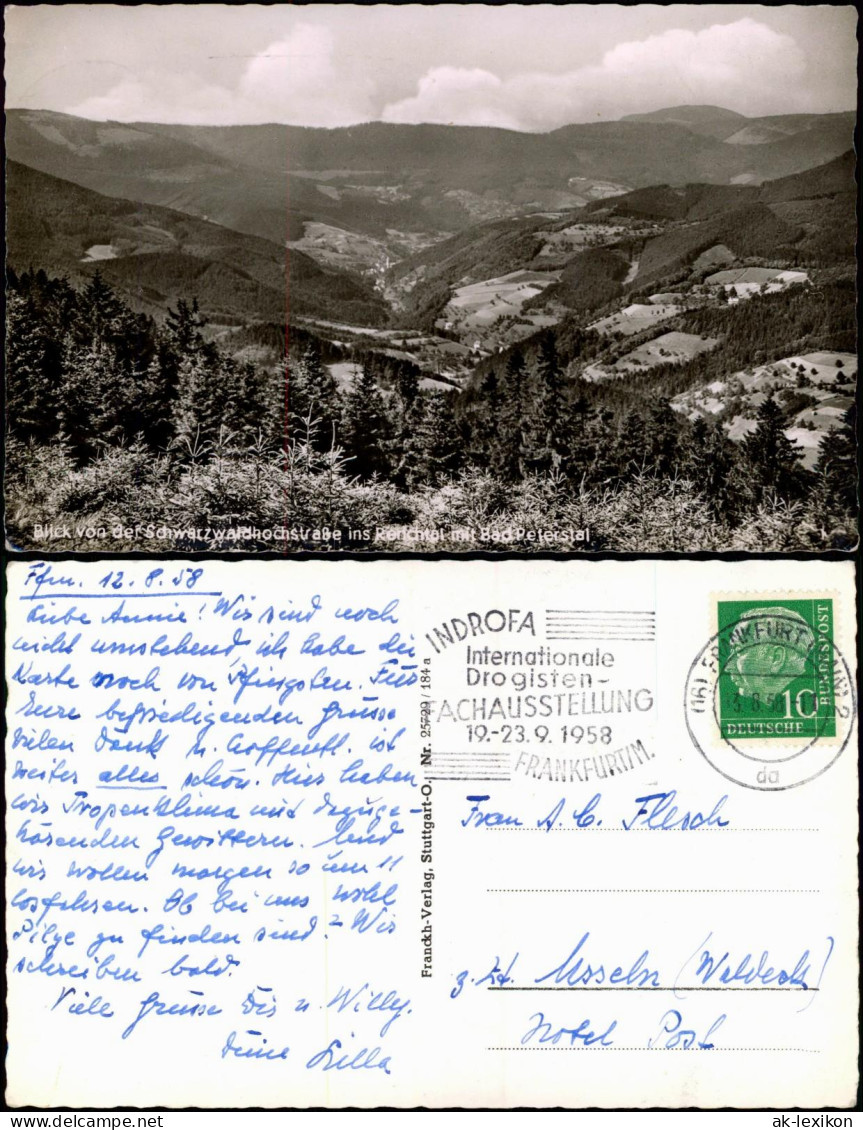 Blick von der Schwarzwaldhochstraße ins Renchtal mit Bad Peterstal
Ffm. 12.8.58
Liebe Annie! Wir sind noch
nicht umstehend, ich habe die
Karte noch von Pfingsten. Für
Eure befriedigenden Grüsse
vielen Dank u. hoffentl. ist
weiter alles schön. Hier haben
wir Tropenklima mit dazuge-
hörenden Gewittern. Und
wir wollen morgen so um 11
losfahren. Ob bei uns wohl
Pilze zu finden sind? Wir
schreiben bald.
Viele Grüsse Dir u. Willy.
Deine Lilla
Franckh-Verlag, Stuttgart-O. Nr. 25729/184 a
INDROFA
Internationale
Drogisten-
FACHAUSSTELLUNG
19.-23.9.1958
FRANKFURT/M.
FRANKFURT (MAIN) 2
da
10
DEUTSCHE
BUNDESPOST
Frau A. C. Flesch
z. Zt. Usseln (Waldeck)
Hotel Post
ak-lexikon